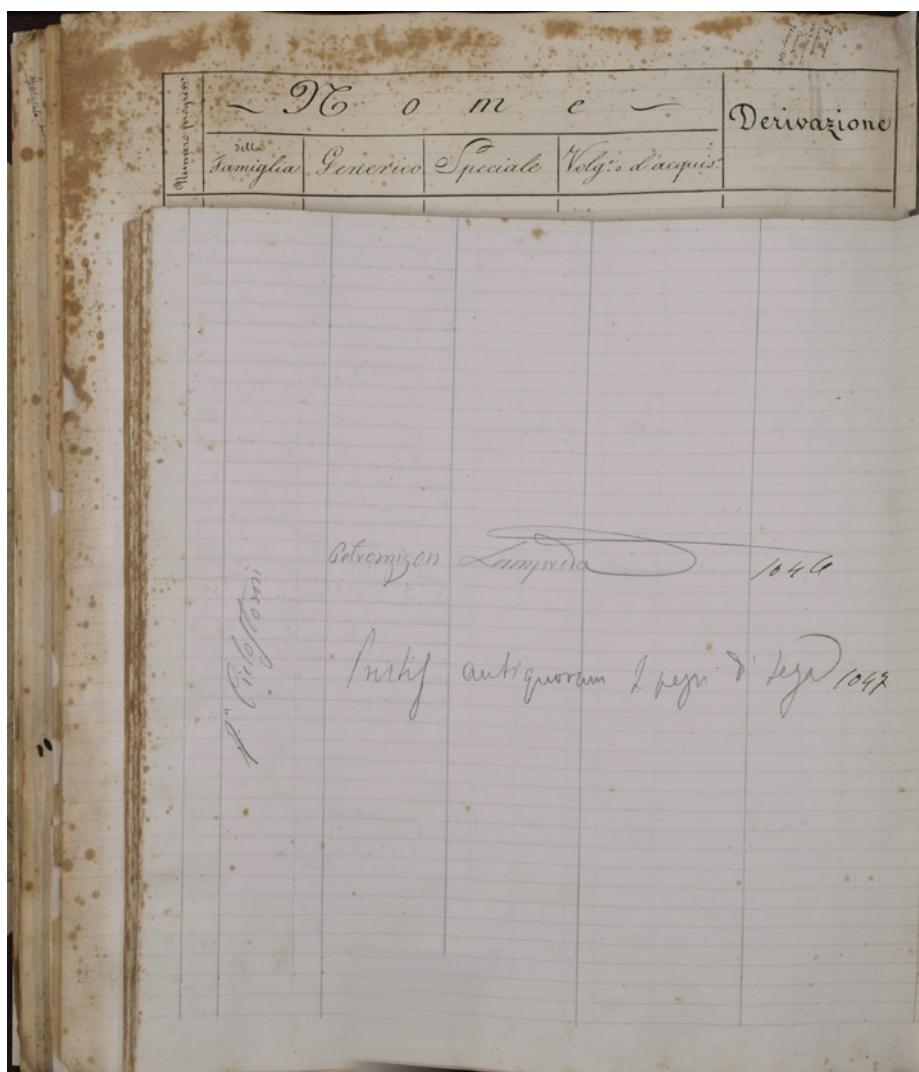 Numero progress.
~ Nome ~
Derivazione
della Famiglia
Generico
Speciale
Volg.e o d'acquis.
Petromizon Lampreda 1046
Pristis antiquorum 2 pezzi di sega 1047
Ciclostomi